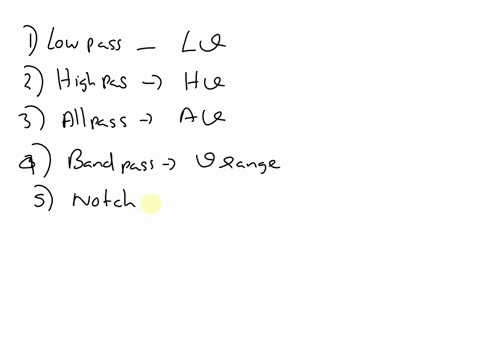 1) Low pass – Lυ
2) High pas → Hυ
3) All pass → Aυ
4) Band pass → υ range
5) Notch